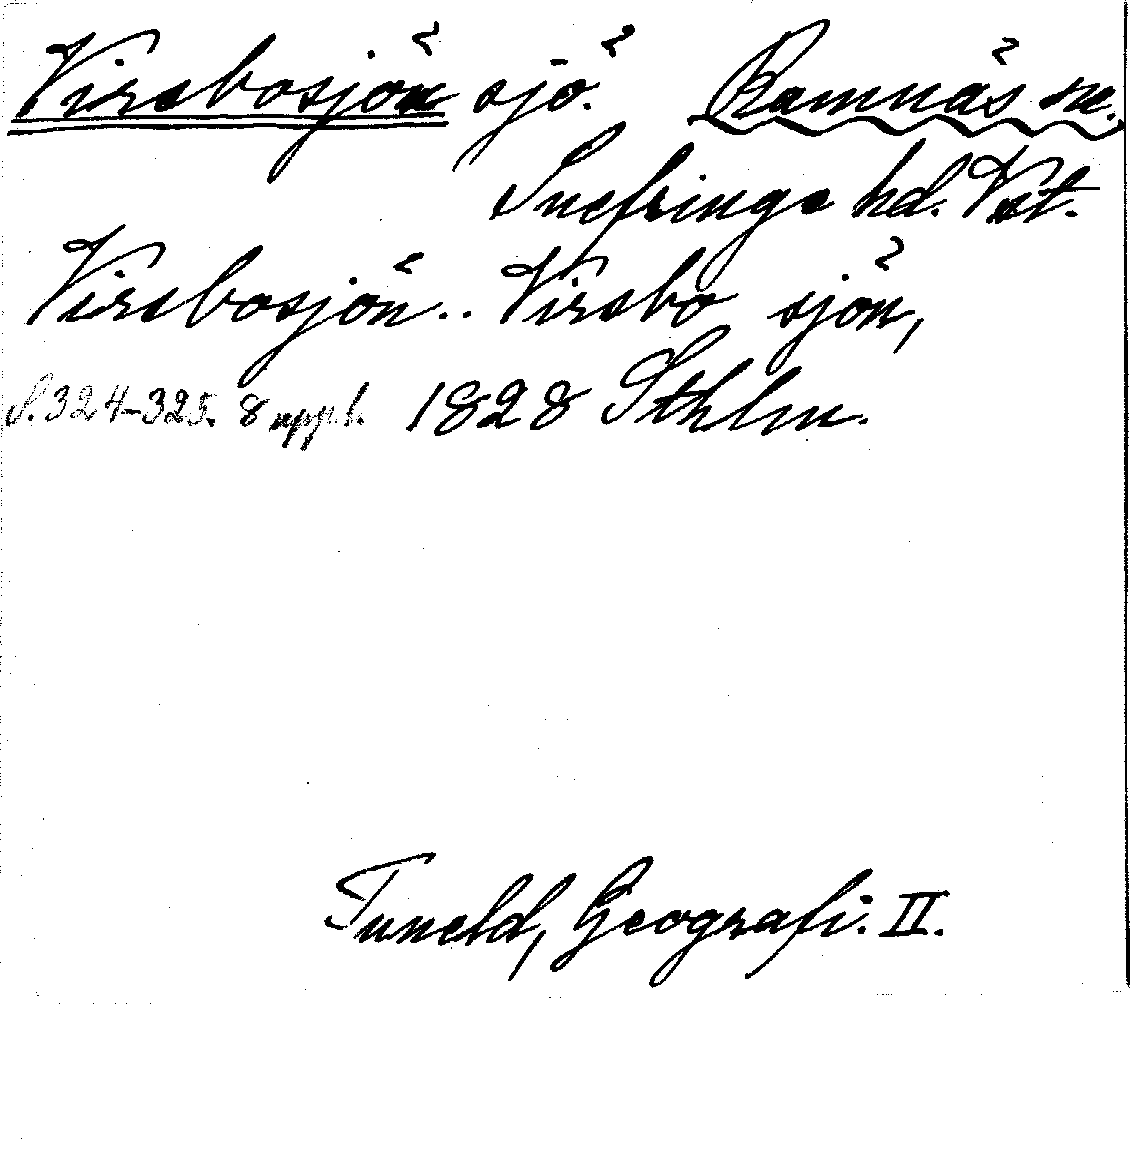 Virsbosjön sjö. Ramnäs sn.
Snefringe hd. Vstm.
Virsbosjön.. Virsbo sjön,
S. 324-325. 8 uppl. 1828 Sthlm.
Tuneld, Geografi. II.